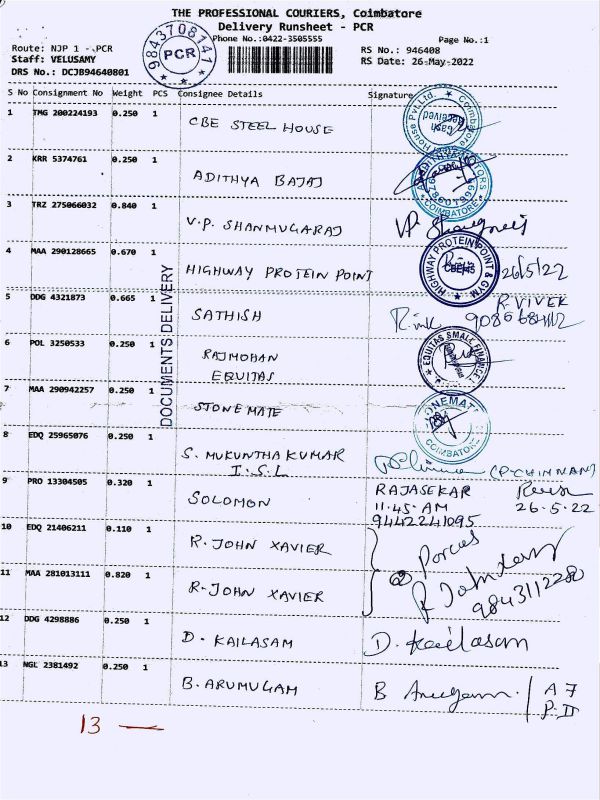 THE PROFESSIONAL COURIERS, Coimbatore
Delivery Runsheet - PCR
Phone No.:0422-3505555
Page No.:1
Route: NJP 1 - PCR
RS No.: 946408
Staff: VELUSAMY
RS Date: 26-May-2022
DRS No.: DCJB94640801
9843708141
PCR
S No Consignment No Weight PCS Consignee Details Signature
1 TMG 200224193 0.250 1 CBE STEEL HOUSE
2 KRR 5374761 0.250 1 ADITHYA BAJAJ
COIMBATORE
3 TRZ 275066032 0.840 1 V.P. SHANMUGARAJ
4 MAA 290128665 0.670 1 HIGHWAY PROTEIN POINT
HIGHWAY PROTEIN POINT & GYM
26/5/22
DOCUMENTS DELIVERY
5 DDG 4321873 0.665 1 SATHISH
R. VIVEK
6 POL 3250533 0.250 1 RAJMOHAN
EQUITAS
EQUITAS SMALL FINANCE
7 MAA 290942257 0.250 1 STONEMATE
COIMBATORE
8 EDQ 25965076 0.250 1 S. MUKUNTHAKUMAR
I.S.L
(P.CHINNAN)
9 PRO 13304505 0.320 1 SOLOMON
RAJASEKAR
11.45. AM 26.5.22
9442241095
10 EDQ 21406211 0.110 1 R. JOHN XAVIER
11 MAA 281013111 0.820 1 R. JOHN XAVIER
R John Xavier
12 DDG 4298886 0.250 1 D. KAILASAM
D. Kailasam
13 NGL 2381492 0.250 1 B. ARUMUGAM
A 7
P.II
13 —